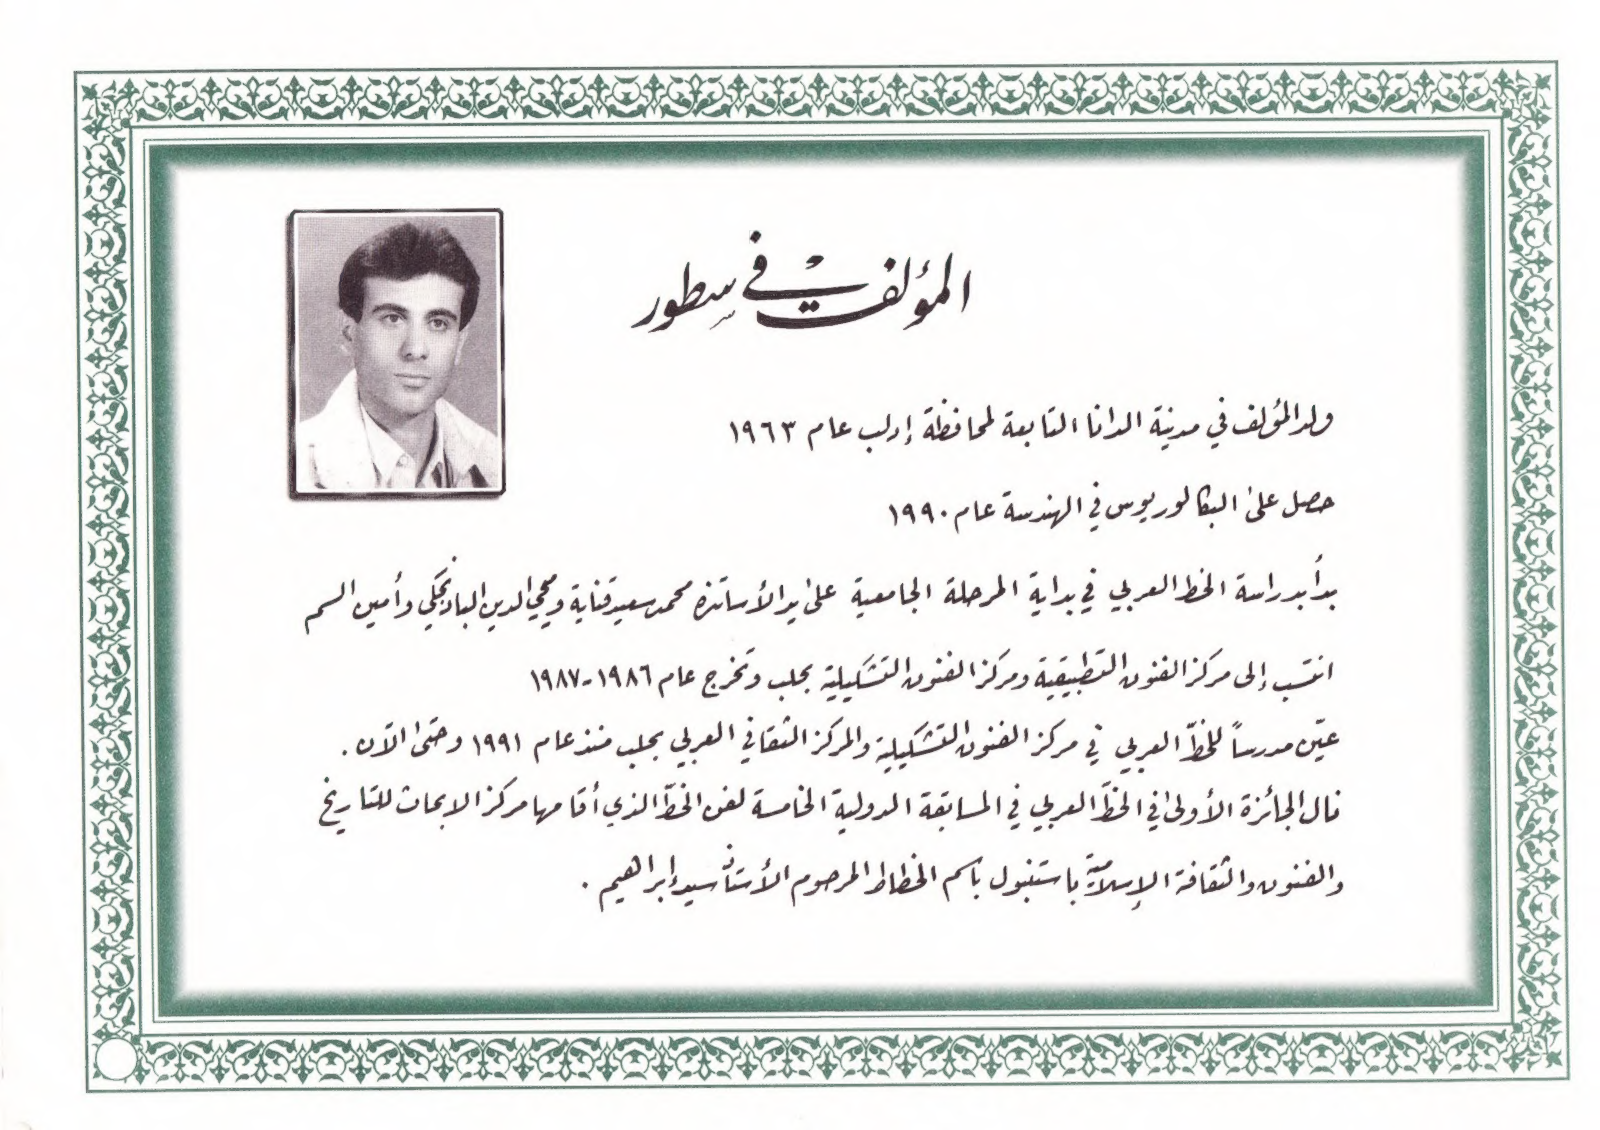 المؤلف في سطور
ولد المؤلف في مدينة الدانا التابعة لمحافظة إدلب عام ١٩٦٣
حصل على البكالوريوس في الهندسة عام ١٩٩٠
بدأ بدراسة الخط العربي في بداية المرحلة الجامعية على يد الأساتذة محمد سعيد قناية ومحي الدين الباذنجكي وأمين السم
انتسب إلى مركز الفنون التطبيقية ومركز الفنون التشكيلية بحلب وتخرج عام ١٩٨٦-١٩٨٧
عيّن مدرساً للخطّ العربي في مركز الفنون التشكيلية والمركز الثقافي العربي بحلب منذ عام ١٩٩١ وحتى الآن .
نال الجائزة الأولى في الخطّ العربي في المسابقة الدولية الخامسة لفن الخطّ الذي أقامها مركز الابحاث للتاريخ
والفنون والثقافة الإسلامية باستنبول باسم الخطاط المرحوم الأستاذ سيد إبراهيم .